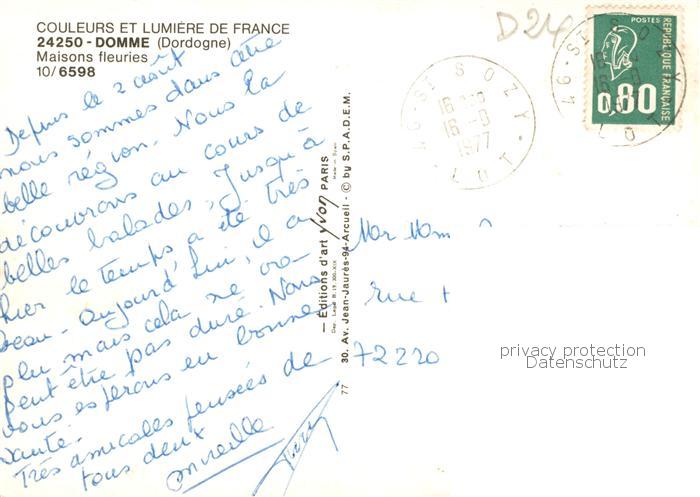 COULEURS ET LUMIÈRE DE FRANCE
24250 - DOMME (Dordogne)
Maisons fleuries
10/6598
Depuis le 2 août
nous sommes dans cette
belle région. Nous la
découvrons au cours de
belles balades, jusqu'à
hier le temps a été très
beau. Aujourd'hui, il a
plu mais cela ne va
peut être pas duré. Nous
vous espérons en bonne
santé.
Très amicales pensées de
tous deux
Mireille
— Editions d'art yvon PARIS
30, Av. Jean-Jaurès-94-Arcueil - © by S.P.A.D.E.M.
77
D24
46-ST SOZY
16
16-8
1977
LOT
POSTES
RÉPUBLIQUE FRANÇAISE
0,80
46-ST SOZY
LOT
rue
72220
privacy protection
Datenschutz